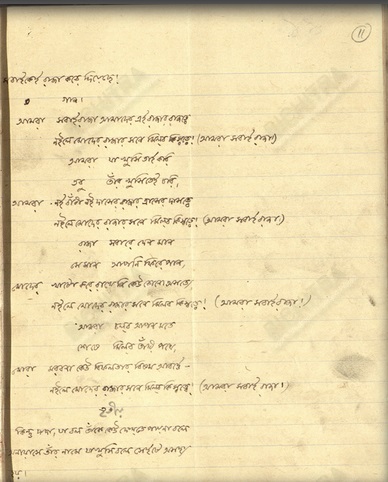 11
সবাইকেই রাজা করে দিয়েছে!
গান।
আমরা সবাই রাজা আমাদের এই রাজার রাজত্বে
নইলে মোদের রাজার সনে মিলব কি স্বত্বে! (আমরা সবাই রাজা)
আমরা যা খুসি তাই করি
তবু তাঁর খুসিতেই চরি,
আমরা নই বাঁধা নই দাসের রাজার ত্রাসের দাসত্বে
নইলে মোদের রাজার সনে মিলব কি স্বত্বে! (আমরা সবাই রাজা)
রাজা সবারে দেন মান
সে মান আপনি ফিরে পান,
মোদের খাটো করে রাখেনি কেউ কোনো অসত্যে
নইলে মোদের রাজার সনে মিলব কি স্বত্বে! (আমরা সবাই রাজা!)
আমরা চলব আপন মতে
শেষে মিলব তাঁরি পথে,
মোরা মরব না কেউ বিফলতার বিষম আবর্তে –
নইলে মোদের রাজার সনে মিলব কি স্বত্বে! (আমরা সবাই রাজা!)
তৃতীয়
কিন্তু দাদা, যা বল তাঁকে কেউ দেখতে পায়না বলে
তাঁর নামে যা খুসি বলে সেইটে অসহ্য